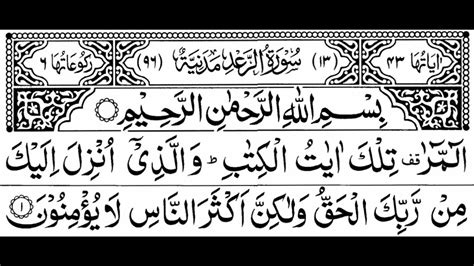 اٰیَاتُهَا ٤٣ (١٣) سُوْرَةُ الرَّعْدِ مَدَنِیَّةٌ (٩٦) رُكُوْعَاتُهَا ٦
بِسْمِ اللّٰهِ الرَّحْمٰنِ الرَّحِیْمِ
الٓمّٓرٰ ۫ قف تِلْكَ اٰیٰتُ الْكِتٰبِ ؕ وَالَّذِیْۤ اُنْزِلَ اِلَیْكَ
مِنْ رَّبِّكَ الْحَقُّ وَلٰكِنَّ اَكْثَرَ النَّاسِ لَا یُؤْمِنُوْنَ ١